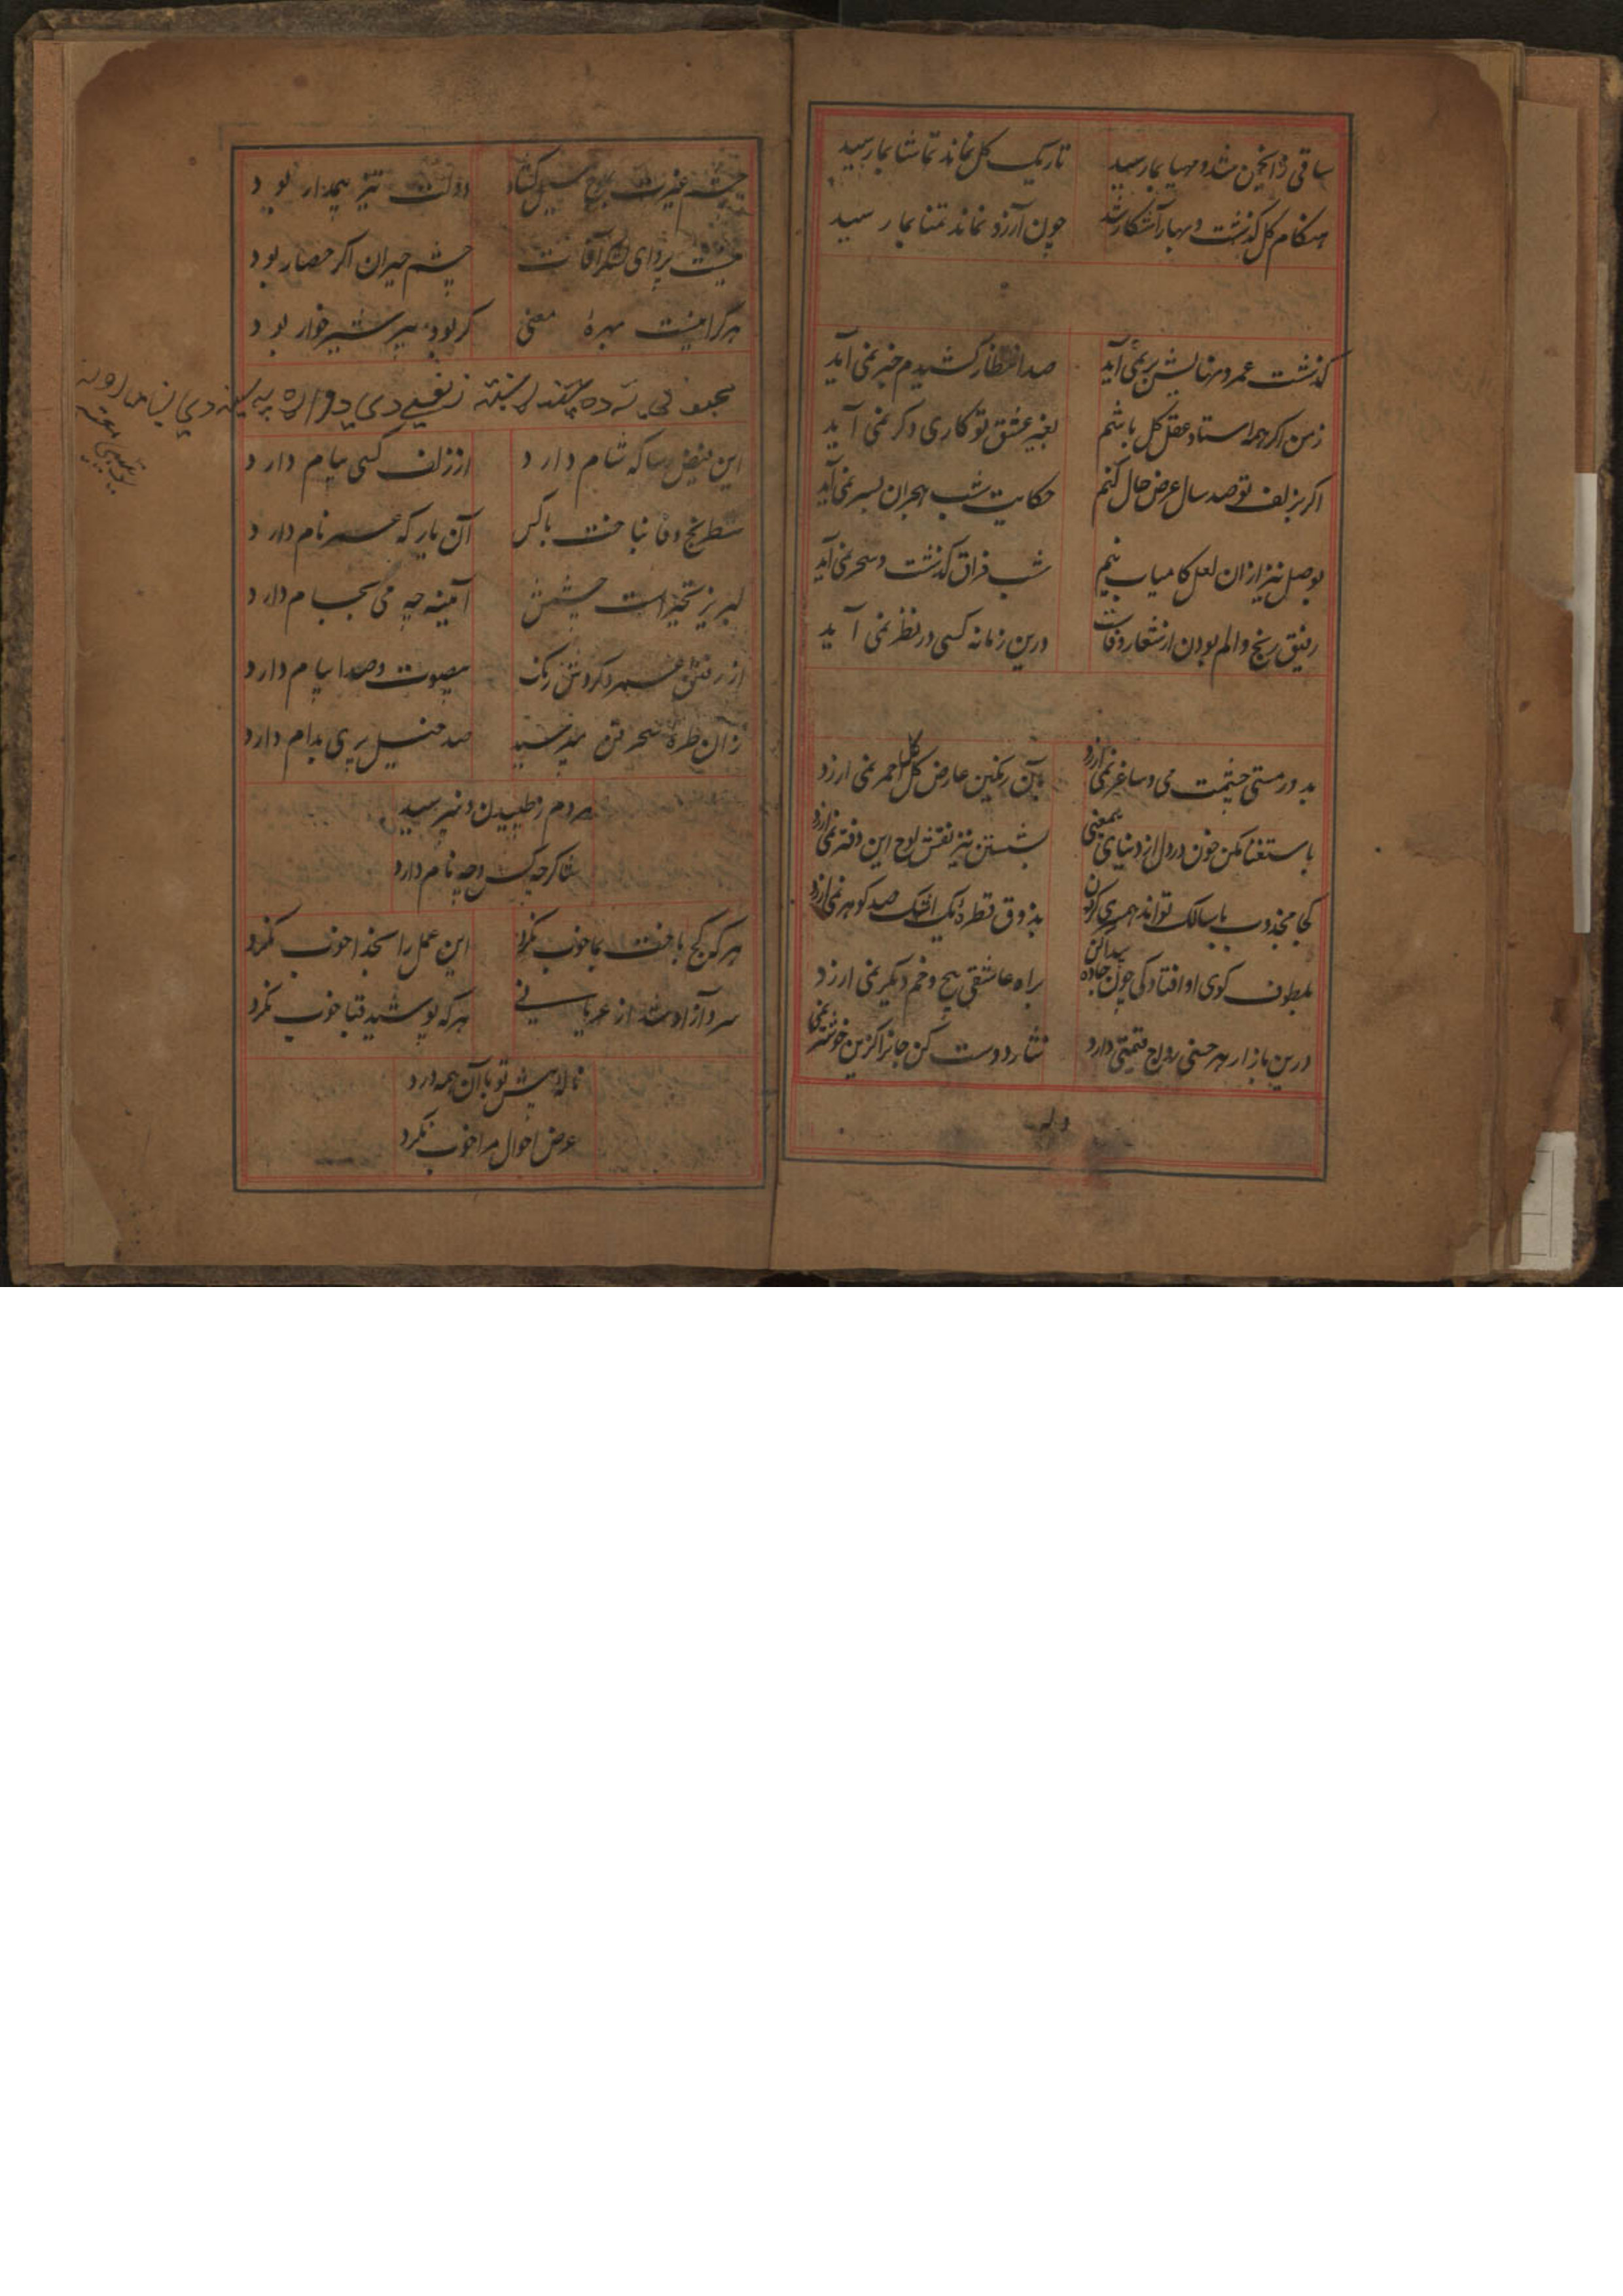 ساقی ز انجمن شد و مهیا بما رسید
تاریک کل نماند تماشا بما رسید
هنکام کل کذشت و بهار آشکار شد
چون آرزو نماند تمنا بما رسید
کذشت عمر و نمی آید
صد انتظار کشیدم خبر نمی آید
ز من اکر همه استاد عقل کل باشم
بغیر عشق تو کاری دکر نمی آید
اکر بزلف تو صد سال عرض حال کنم
حکایت شب هجران بسر نمی آید
بوصل نیز ازان لعل کامیاب نیم
شب فراق کذشت و سحر نمی آید
رفیق رنج و الم بودن از شعار وفاست
درین زمانه کسی در نظر نمی آید
بدور مستی چشمت می و ساغر نمی ارزد
بآن رنکین عارض کل احمر نمی ارزد
باستغنا مکن خون در دل از دنیای بیمعنی
بشستن نیز نقش لوح این دفتر نمی ارزد
کجا مجذوب با سالک تواند همسری کردن
بذوق قطرهٔ یک اشک صد کوهر نمی ارزد
بطوف کوی او افتادکی چون جاده
براه عاشقی پیچ و خم دیکر نمی ارزد
درین بازار هر جنسی رواج قیمتی دارد
نثار دوست کن جانرا کزین خوشتر نمی
وله
چشم عبرت
دولت تیز بیدار بود
نیست پروای لشکر آفات
چشم حیران اکر حصار بود
هرکرا نیست بهرهٔ معنی
کر بود پیر شیرخوار بود
این فیض رسا که شام دارد
از زلف کسی پیام دارد
شطرنج وفا نباخت با کس
آن یار که نام دارد
لبریز تحیر است چشمش
آیینه چه می بجام دارد
از رفتن عمر و کردش رنک
بیصوت و صدا پیام دارد
زان طرهٔ سحر فن
صد خیل پری بدام دارد
مردم ز طپیدن و نپرسید
شاکر چه کس و چه نام دارد
هر که کج باخت بما خوب نکرد
این عمل را بخدا خوب نکرد
سرو آزاد شد از عریانی
هر که پوشید قبا خوب نکرد
ناله پیش تو بآن همه درد
عرض احوال مرا خوب نکرد